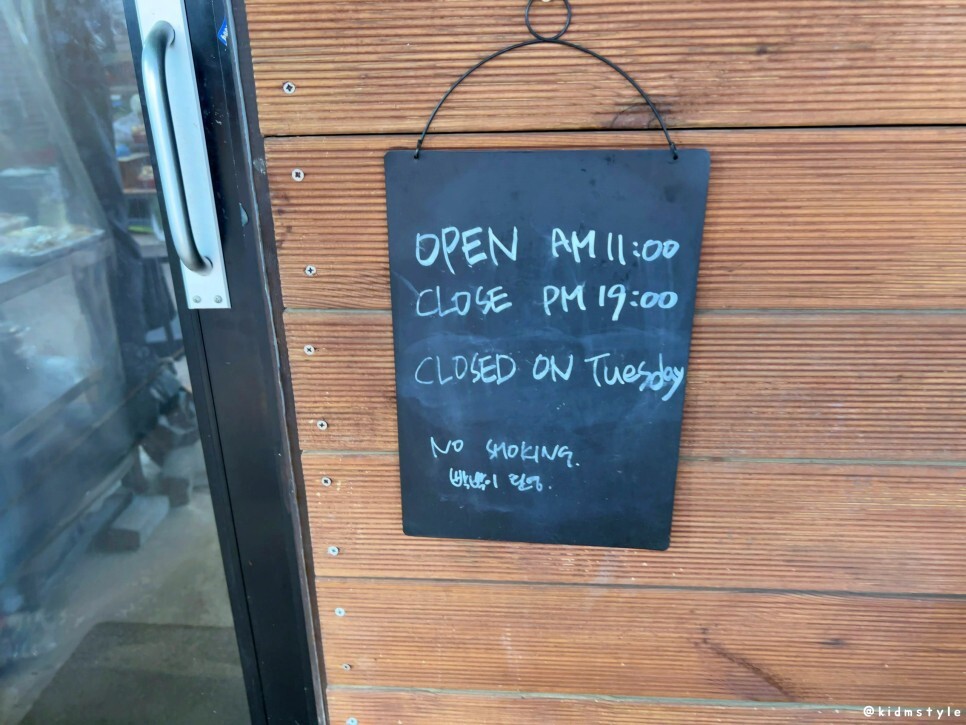 OPEN AM 11:00
CLOSE PM 19:00
CLOSED ON Tuesday
NO SMOKING.
@kidmstyle